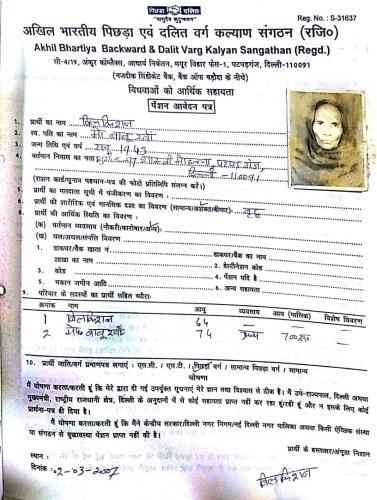 पिछड़ा दलित
"वसुधैव कुटुम्बकम"
Reg. No. : S-31637
अखिल भारतीय पिछड़ा एवं दलित वर्ग कल्याण संगठन (रजि०)
Akhil Bhartiya Backward & Dalit Varg Kalyan Sangathan (Regd.)
सी-4/19, अंकुर कॉम्प्लैक्स, आचार्य निकेतन, मयूर विहार फेस-1, पटपड़गंज, दिल्ली-110091
(नजदीक सिंडीकेट बैंक, बैंक ऑफ बड़ौदा के नीचे)
विधवाओं को आर्थिक सहायता
पेंशन आवेदन पत्र
1. प्रार्थी का नाम बिलकिशान
2. स्व. पति का नाम बाबू खाँ
3. जन्म तिथि एवं वर्ग सन् 1943
4. वर्तमान निवास का पता
दिल्ली-110091
(राशन कार्ड/चुनाव पहचान-पत्र की फोटो प्रतिलिपि संलग्न करें।)
5. प्रार्थी का मतदाता सूची में पंजीकरण का विवरण :
6. प्रार्थी की शारीरिक एवं मानसिक दशा का विवरण (सामान्य/अशक्त/बीमार)
8. प्रार्थी की आर्थिक स्थिति का विवरण :
(क) वर्तमान व्यवसाय (नौकरी/कारोबार/अन्य)
(ख) चल/अचल/संपत्ति विवरण
1. डाकघर/बैंक खाता नं. डाकघर/बैंक का नाम
शाखा का नाम 2. डेस्टीनेशन कोड
3. कोड 4. पेंशन यदि है
5. मकान जमीन आदि 6. अन्य सहायता
9. परिवार के सदस्यों का प्रार्थी सहित ब्यौरा:
क्रमांक नाम आयु व्यवसाय आय (मासिक) विशेष विवरण
1 बिलकिशान 64 —
2 बाबू खाँ 74
10. प्रार्थी जाति/वर्ग प्रमाणपत्र लगाएं : एस.सी. / एस.टी. / पिछड़ा वर्ग / सामान्य पिछड़ा वर्ग / सामान्य
घोषणा
मैं घोषणा करता/करती हूं कि मेरे द्वारा दी गई उपर्युक्त सूचनाएं मेरे ज्ञान तथा विश्वास से ठीक हैं। मैं उप-राज्यपाल, दिल्ली अथवा
मुख्यमंत्री, राष्ट्रीय राजधानी क्षेत्र, दिल्ली के अनुदानों में से कोई सहायता प्राप्त नहीं कर रहा हूं/रही हूं और न इसके लिए कोई
प्रार्थना-पत्र ही दिया है।
मैं घोषणा करता/करती हूं कि मैंने केन्द्रीय सरकार/दिल्ली नगर निगम/नई दिल्ली नगर पालिका अथवा किसी ऐच्छिक संस्था
या संगठन से वृद्धावस्था पेंशन प्राप्त नहीं की है।
प्रार्थी के हस्ताक्षर/अंगूठा निशान
स्थान :
दिनांक : 02-03-2007
बिलकिशान